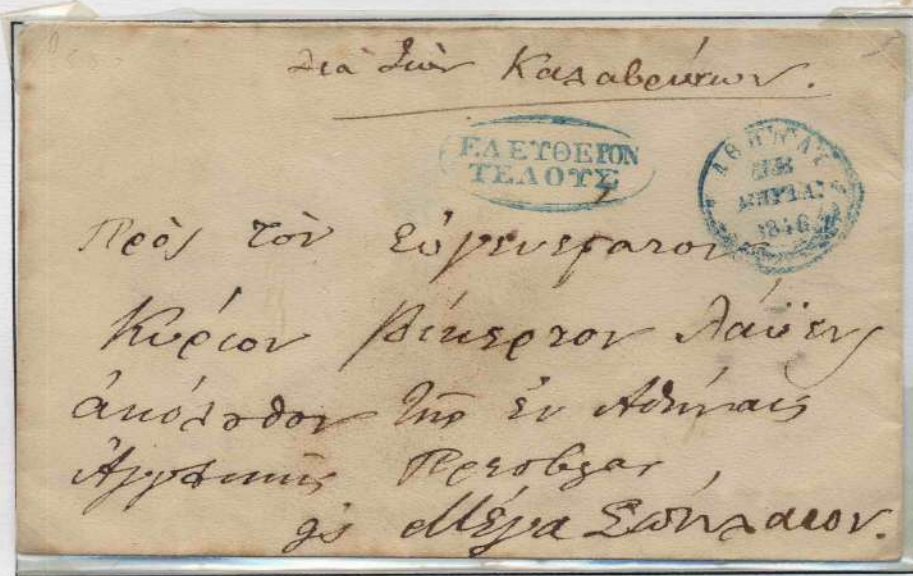 διὰ τῶν Καλαβρύτων.
ΕΛΕΥΘΕΡΟΝ
ΤΕΛΟΥΣ
ΑΘΗΝΑΙ
1846
Πρὸς τὸν Εὐγενέστατον
Κύριον Βίκερτον Λάϋενς
ἀκόλουθον τῆς ἐν Ἀθήναις
Ἀγγλικῆς Πρεσβείας
εἰς Μέγα Σπήλαιον.